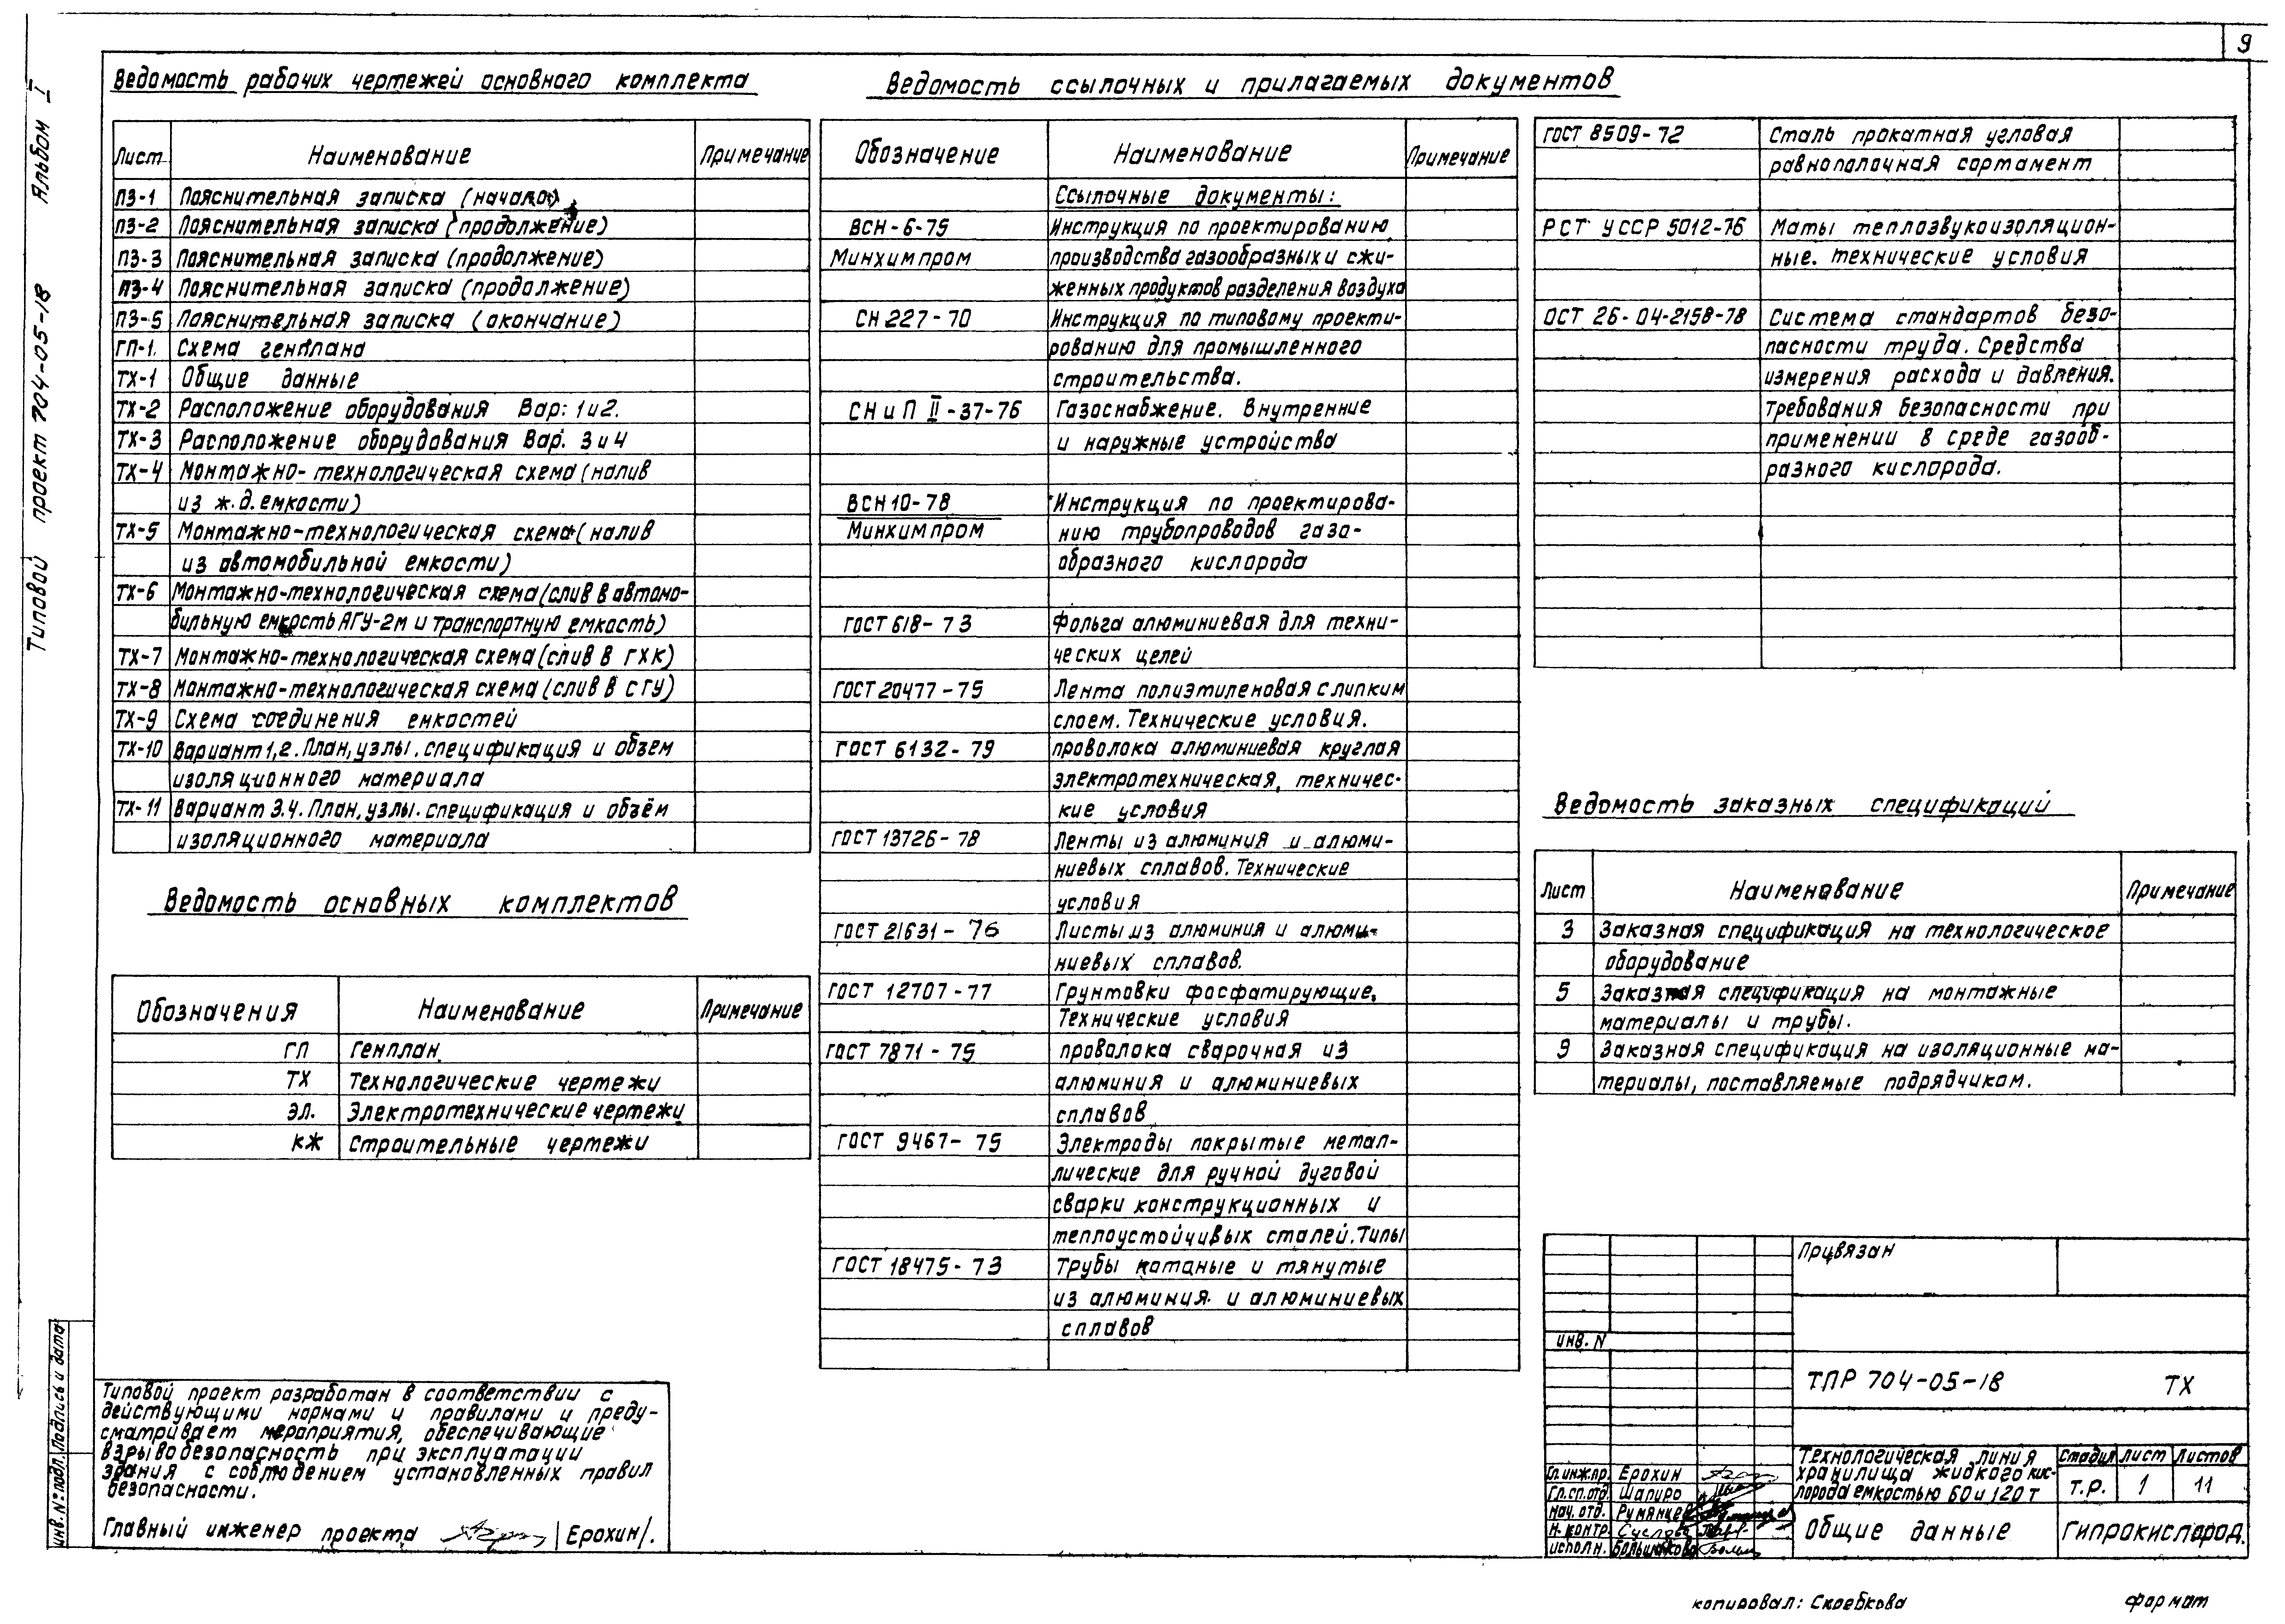 9
Альбом I
Типовой проект 704-05-18
Ведомость рабочих чертежей основного комплекта
Лист Наименование Примечание
ПЗ-1 Пояснительная записка (начало)
ПЗ-2 Пояснительная записка (продолжение)
ПЗ-3 Пояснительная записка (продолжение)
ПЗ-4 Пояснительная записка (продолжение)
ПЗ-5 Пояснительная записка (окончание)
ГП-1. Схема генплана
ТХ-1 Общие данные
ТХ-2 Расположение оборудования Вар: 1 и 2.
ТХ-3 Расположение оборудования Вар. 3 и 4
ТХ-4 Монтажно-технологическая схема (налив
из ж.д. емкости)
ТХ-5 Монтажно-технологическая схема (налив
из автомобильной емкости)
ТХ-6 Монтажно-технологическая схема (слив в автомо-
бильную емкость АГУ-2м и транспортную емкость)
ТХ-7 Монтажно-технологическая схема (слив в ГХК)
ТХ-8 Монтажно-технологическая схема (слив в СГУ)
ТХ-9 Схема соединения емкостей
ТХ-10 Вариант 1,2. План, узлы. спецификация и объем
изоляционного материала
ТХ-11 Вариант 3.4. План, узлы. спецификация и объём
изоляционного материала
Ведомость основных комплектов
Обозначения Наименование Примечание
ГП Генплан
ТХ Технологические чертежи
ЭЛ. Электротехнические чертежи
КЖ Строительные чертежи
Типовой проект разработан в соответствии с
действующими нормами и правилами и преду-
сматривает мероприятия, обеспечивающие
взрывобезопасность при эксплуатации
здания с соблюдением установленных правил
безопасности.
Главный инженер проекта /Ерохин/.
Ведомость ссылочных и прилагаемых документов
Обозначение Наименование Примечание
Ссылочные документы:
ВСН-6-75 Инструкция по проектированию
Минхимпром производства газообразных и сжи-
женных продуктов разделения воздуха
СН 227-70 Инструкция по типовому проекти-
рованию для промышленного
строительства.
СН и П II-37-76 Газоснабжение. Внутренние
и наружные устройства
ВСН 10-78 Инструкция по проектирова-
Минхимпром нию трубопроводов газо-
образного кислорода
ГОСТ 618-73 Фольга алюминиевая для техни-
ческих целей
ГОСТ 20477-75 Лента полиэтиленовая с липким
слоем. Технические условия.
ГОСТ 6132-79 проволока алюминиевая круглая
электротехническая, техничес-
кие условия
ГОСТ 13726-78 Ленты из алюминия и алюми-
ниевых сплавов. Технические
условия
ГОСТ 21631-76 Листы из алюминия и алюми-
ниевых сплавов.
ГОСТ 12707-77 Грунтовки фосфатирующие.
Технические условия
ГОСТ 7871-75 проволока сварочная из
алюминия и алюминиевых
сплавов
ГОСТ 9467-75 Электроды покрытые метал-
лические для ручной дуговой
сварки конструкционных и
теплоустойчивых сталей. Типы
ГОСТ 18475-73 Трубы катаные и тянутые
из алюминия и алюминиевых
сплавов
ГОСТ 8509-72 Сталь прокатная угловая
равнополочная сортамент
РСТ УССР 5012-76 Маты теплозвукоизоляцион-
ные. технические условия
ОСТ 26-04-2158-78 Система стандартов безо-
пасности труда. Средства
измерения расхода и давления.
Требования безопасности при
применении в среде газооб-
разного кислорода.
Ведомость заказных спецификаций
Лист Наименование Примечание
3 Заказная спецификация на технологическое
оборудование
5 Заказная спецификация на монтажные
материалы и трубы.
9 Заказная спецификация на изоляционные ма-
териалы, поставляемые подрядчиком.
Привязан
инв. N
ТПР 704-05-18 ТХ
Технологическая линия
хранилища жидкого кис-
лорода емкостью 60 и 120 т
Стадия Лист Листов
Т.Р. 1 11
Общие данные
Гипрокислород.
Гл.инж.пр. Ерохин
Гл.сп.отд. Шапиро
Нач. отд. Румянцев
Н. контр.
исполн.
инв. № подл. Подпись и дата
копировал: Скребкова
формат